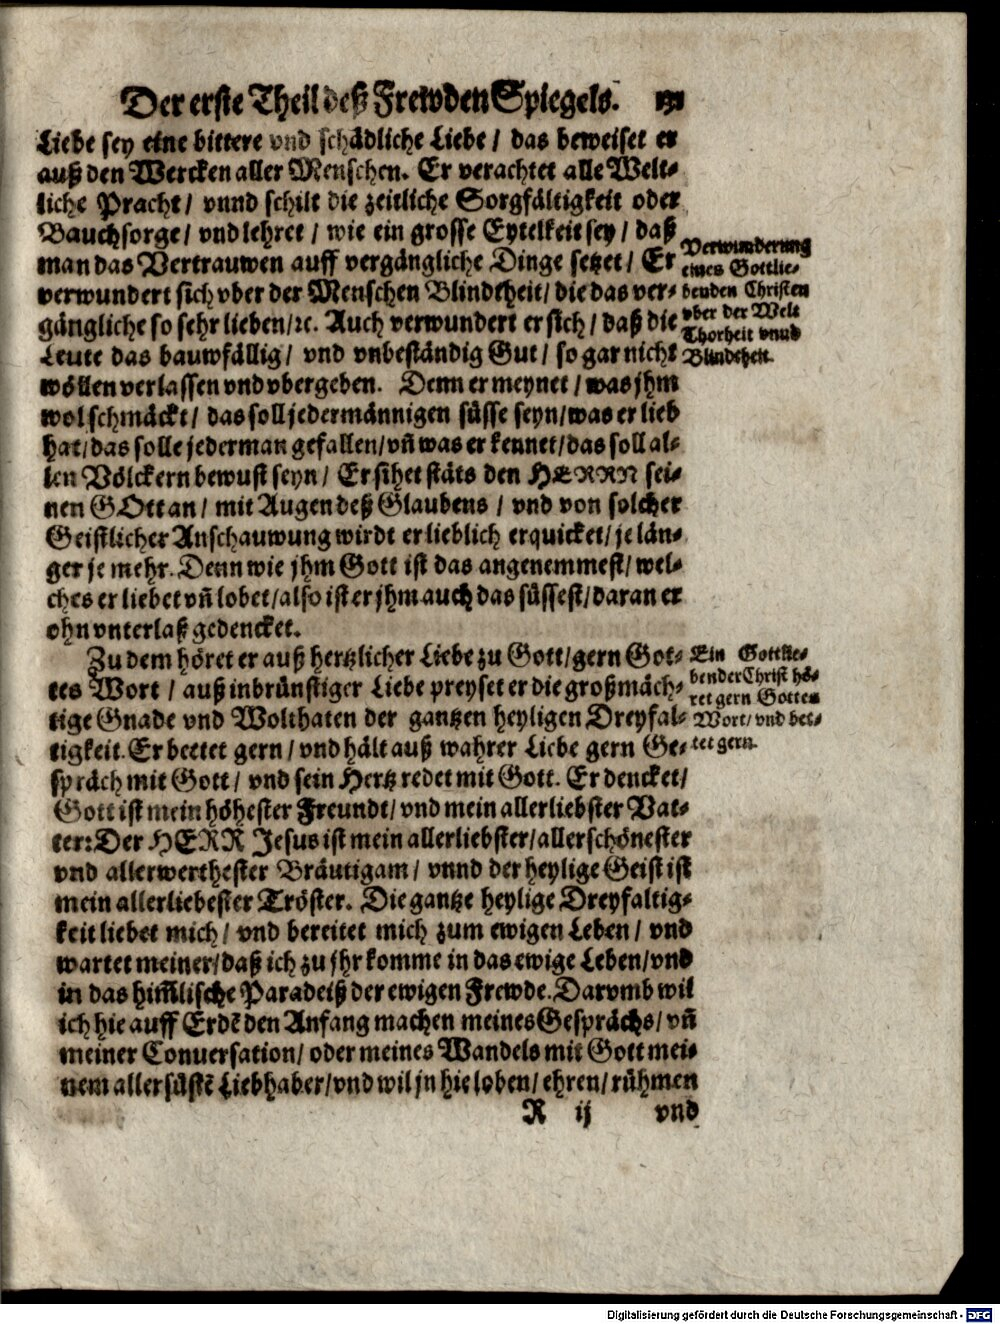 Der erste Theil deß Frewden Spiegels. 131
Liebe sey eine bittere vnd schädliche Liebe / das beweiset er
auß den Wercken aller Menschen. Er verachtet alle Welt-
liche Pracht / vnnd schilt die zeitliche Sorgfältigkeit oder
Bauchsorge / vnd lehret / wie ein grosse Eytelkeit sey / daß
man das Vertrauwen auff vergängliche Dinge setzet / Er
verwundert sich vber der Menschen Blindtheit / die das ver-
gängliche so sehr lieben / ꝛc. Auch verwundert er sich / daß die
Leute das bauwfällig / vnd vnbeständig Gut / so gar nicht
wöllen verlassen vnd vbergeben. Denn er meynet / was jhm
wol schmäckt / das soll jedermännigen süsse seyn / was er lieb
hat / das solle jederman gefallen / vñ was er kennet / das soll al-
len Völckern bewust seyn / Er sihet stäts den HERRN sei-
nen GOtt an / mit Augen deß Glaubens / vnd von solcher
Geistlicher Anschauwung wirdt er lieblich erquicket / je län-
ger je mehr. Denn wie jhm Gott ist das angenemmest / wel-
ches er liebet vñ lobet / also ist er jhm auch das süssest / daran er
ohn vnterlaß gedencket.
Verwunderung
eines Gottlie-
benden Christen
vber der Welt
Thorheit vnnd
Blindtheit.
Zu dem höret er auß hertzlicher Liebe zu Gott / gern Got-
tes Wort / auß inbrünstiger Liebe preyset er die großmäch-
tige Gnade vnd Wolthaten der gantzen heyligen Dreyfal-
tigkeit. Er beetet gern / vnd hält auß wahrer Liebe gern Ge-
spräch mit Gott / vnd sein Hertz redet mit Gott. Er dencket /
Gott ist mein höhester Freundt / vnd mein allerliebster Vat-
ter: Der HERR Jesus ist mein allerliebster / allerschönester
vnd allerwerthester Bräutigam / vnnd der heylige Geist ist
mein allerliebester Tröster. Die gantze heylige Dreyfaltig-
keit liebet mich / vnd bereitet mich zum ewigen Leben / vnd
wartet meiner / daß ich zu jhr komme in das ewige Leben / vnd
in das him̃lische Paradeiß der ewigen Frewde. Darvmb wil
ich hie auff Erdẽ den Anfang machen meines Gesprächs / vñ
meiner Conuersation / oder meines Wandels mit Gott mei-
nem allersüstẽ Liebhaber / vnd wil jn hie loben / ehren / rühmen
Ein Gottlie-
bender Christ hö-
ret gern Gottes
Wort / vnd bet-
tet gern.
R ij vnd
Digitalisierung gefördert durch die Deutsche Forschungsgemeinschaft - DFG